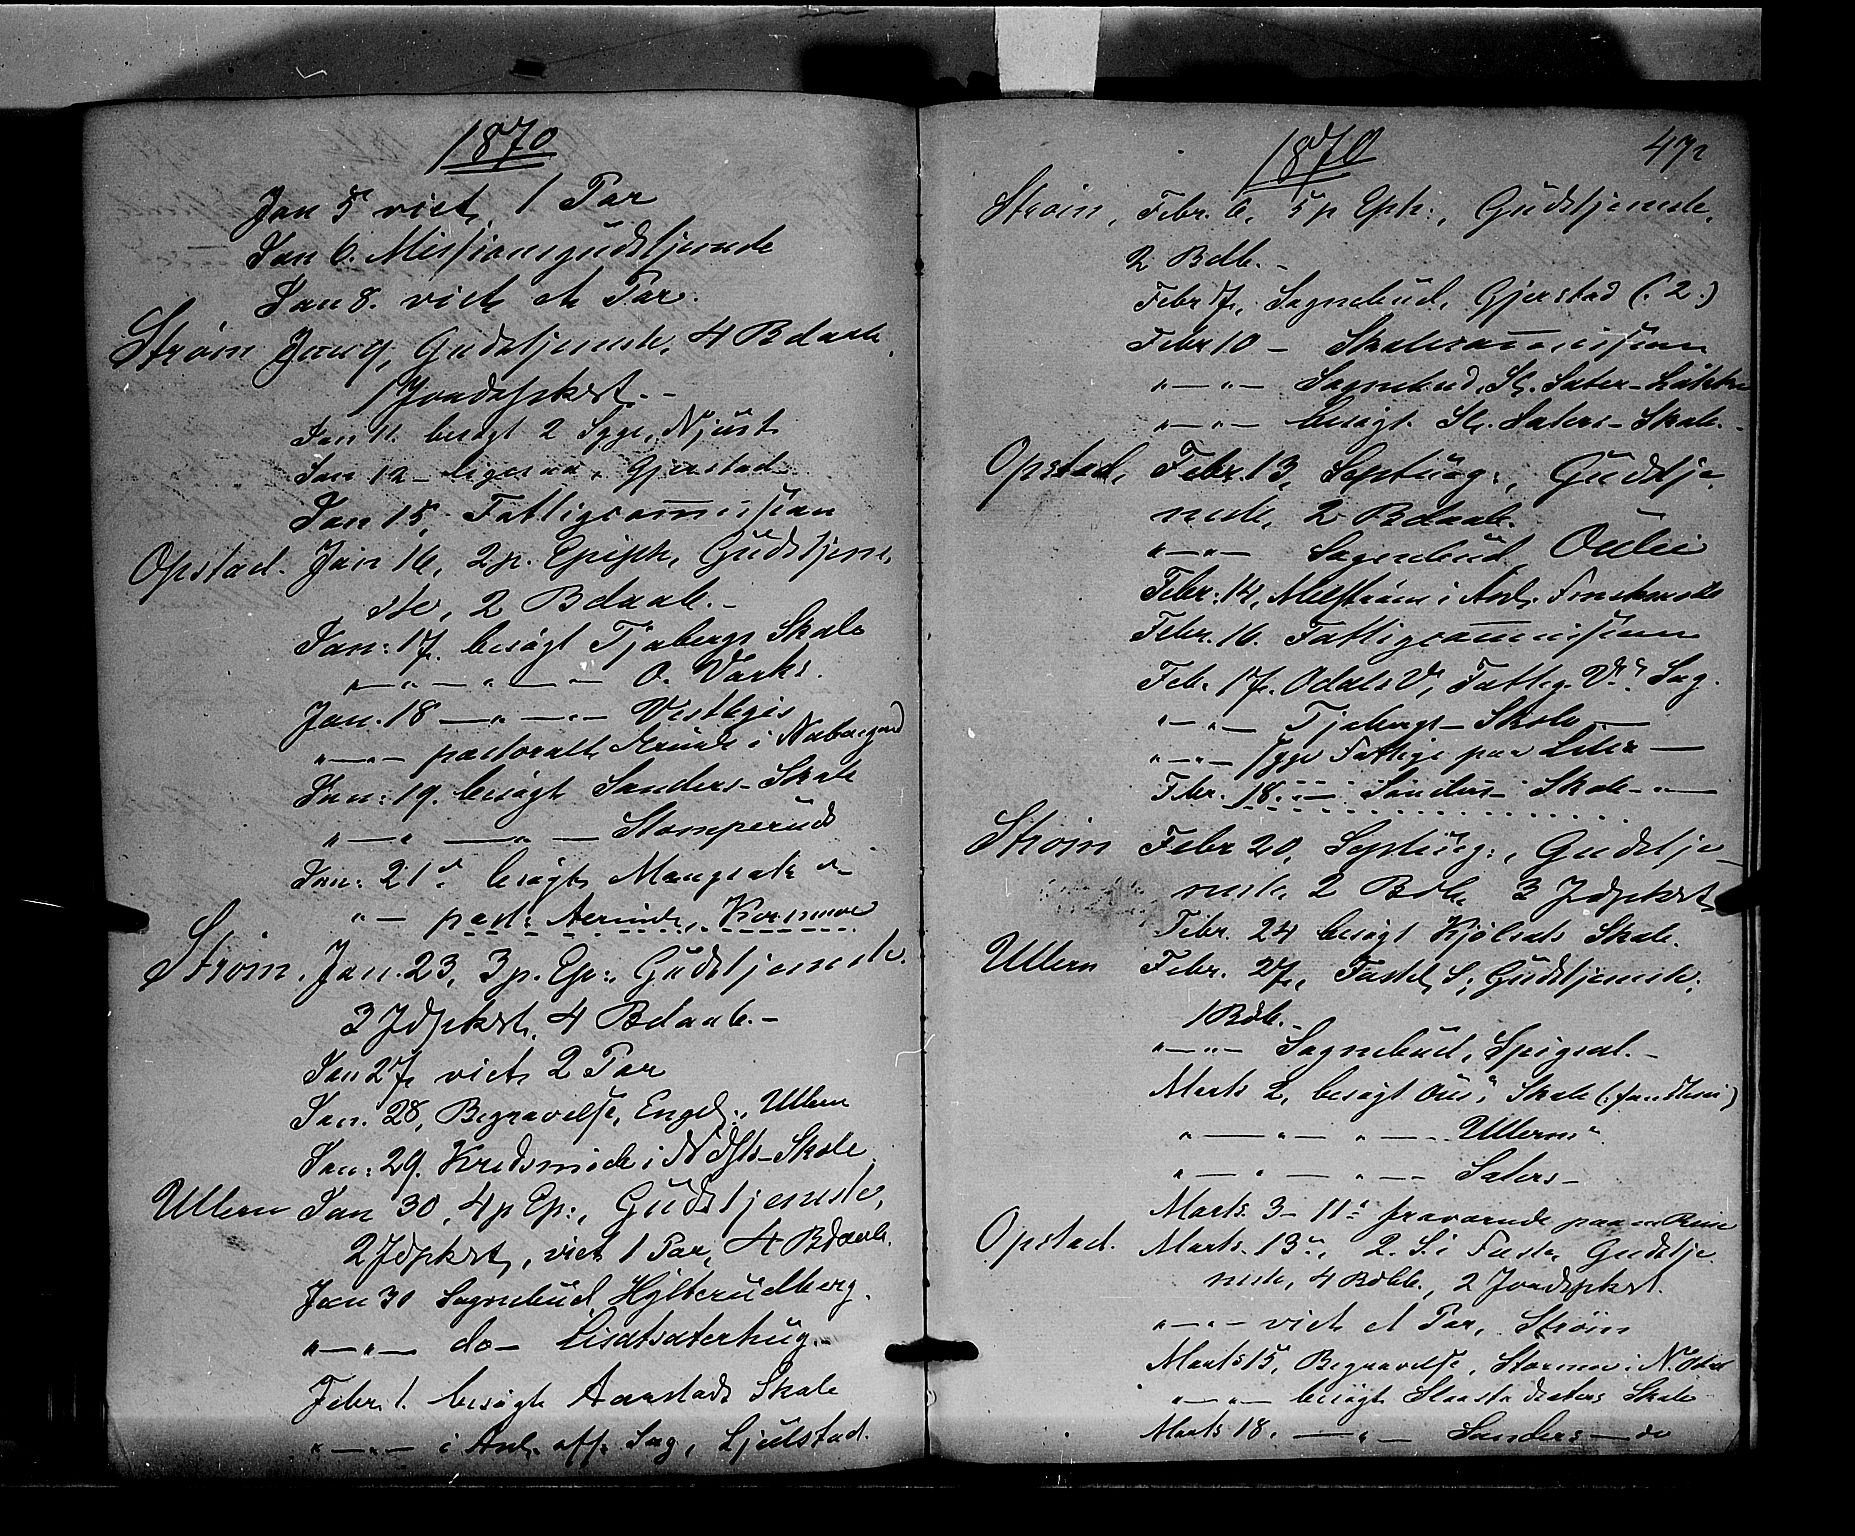 1870
Jan 5 viet, 1 Par
Jan 6. Missionsgudstjeneste
Jan 8. viet et Par.
Strøm Jan 9, Gudstjeneste, 4 Bdaab.
1 Jordspkst. -
Jan 11. besøgt 2 Syge, Njust
Jan 12 - ligesaa, Gjerstad
Jan 15, Fattigcommission
Opstad. Jan 16, 2 p. Epiph, Gudstjene,
ste, 2 Bdaab. -
Jan: 17. besøgt Tjabergs Skole
" — " — " — O. Værks.
Jan. 18 — " — " — Vestbyes
" — " — pastoralt Ærinde i
Jan: 19. besøgt Sanders - Skole
" — " — " — Stomperuds
Jan: 21de besøgt
" — past: Aerinde, Kornmoe
Strøm. Jan. 23, 3 p. Ep:, Gudstjeneste.
3 Jdspkst, 4 Bdaab. -
Jan 27, viet 2 Par
Jan. 28, Begravelse, Enged:, Ullern
Jan: 29. Kredsmøde i Skole.
Ullern Jan 30, 4 p Ep:, Gudstjeneste,
2 Jdpkst, viet 1 Par, 4 Bdaab.
Jan 30 Sognebud, Hylterudberg.
" — " — do -
Febr. 1. besøgt Aarstads Skole
" — " — i Anl. off. Sag, Ljulstad.
1870
472
Strøm, Febr. 6, 5 p Eph:, Gudstjeneste,
2 Bdb. -
Febr 7, Sognebud, Gjerstad (: 2 :)
Febr 10 - Skolecommission
" — " — Sognebud, St. Sater - Løkken
" — " — besøgt St. Saters - Skole. -
Opstad, Febr. 13, Septuag:, Gudstje
neste, 2 Bdaab.
" — " — Sognebud, Oulie
Febr: 14, i Anl.
Febr. 16. Fattigcommission
Feb. 17. Odals V, Fattig. V. Sag.
" — " — Tjabergs - Skole —
" — " — syge Fattige paa —
Febr. 18. — Sanders - Skole - " —
Strøm Febr 20, Septuag:, Gudstje -
neste, 2 Bdb, 3 Jdspkst,
Febr. 24 besøgt Kjølsets Skole.
Ullern Febr. 27, Fastel. S, Gudstjeneste,
1 Bdb. -
" — " — Sognebud, Spigset. -
Marts 2, besøgt Oues Skole
" — " — " — Ullerns
" — " — " — Saters -
Marts 3 - 11te fraværende paa en Reise
Opstad. Marts. 13de, 2. S. i Faste, Gudstje
neste, 4 Bdbb., 2 Jordspkst.
" — " — viet et Par, Strøm
Marts 15, Begravelse, Stormoe i N. Odal
" — " — besøgt Skole
Marts 18. — " — Sanders — do